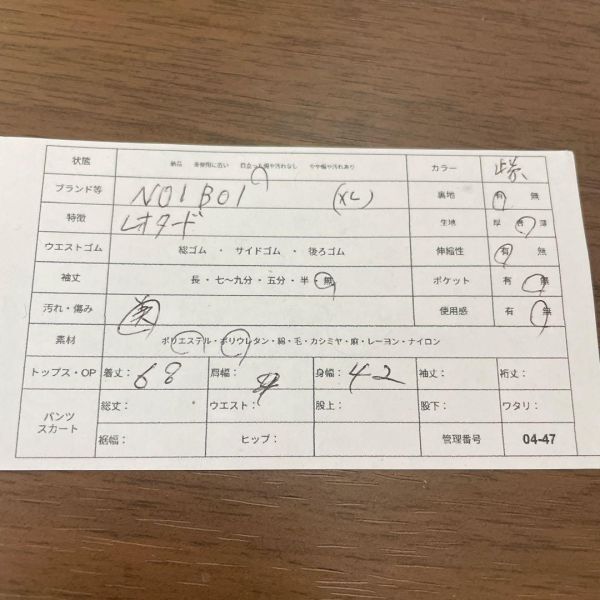 状態 新品 未使用に近い 目立った傷や汚れなし やや傷や汚れあり カラー 紫
ブランド等 NO1 BO1 (XL) 裏地 有 無
特徴 レオタード 生地 厚 普 薄
ウエストゴム 総ゴム ・ サイドゴム ・ 後ろゴム 伸縮性 有 無
袖丈 長・七〜九分・五分・半・無 ポケット 有 無
汚れ・傷み 無 使用感 有 無
素材 ポリエステル・ポリウレタン・綿・毛・カシミヤ・麻・レーヨン・ナイロン
トップス・OP 着丈: 68 肩幅: 身幅: 42 袖丈: 裄丈:
パンツ スカート 総丈: ウエスト: 股上: 股下: ワタリ:
裾幅: ヒップ: 管理番号 04-47